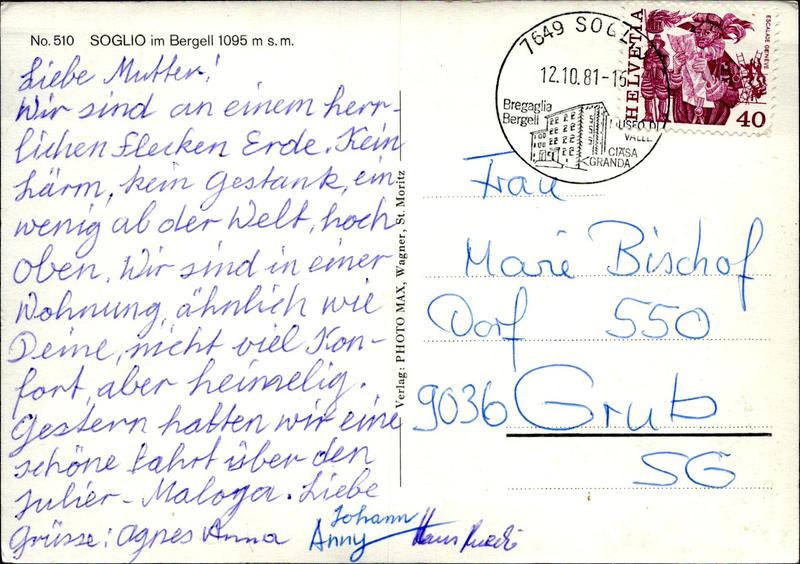 No. 510 SOGLIO im Bergell 1095 m s. m.
Liebe Mutter!
Wir sind an einem herr-
lichen Flecken Erde. Kein
Lärm, kein Gestank, ein
wenig ab der Welt, hoch
oben. Wir sind in einer
Wohnung, ähnlich wie
Deine, nicht viel Kon-
fort, aber heimelig.
Gestern hatten wir eine
schöne Fahrt über den
Julier - Maloya. Liebe
Grüsse: Agnes Anna
Johann
Anny
Hans
Verlag: PHOTO MAX, Wagner, St. Moritz
7649 SOGL
12.10.81-16
Bregaglia
Bergell
MUSEO DI
VALLE
CIÄSA
GRANDA
HELVETIA
ESCALADE GENÈVE
40
Frau
Marie Bischof
Dorf 550
9036 Grub
SG